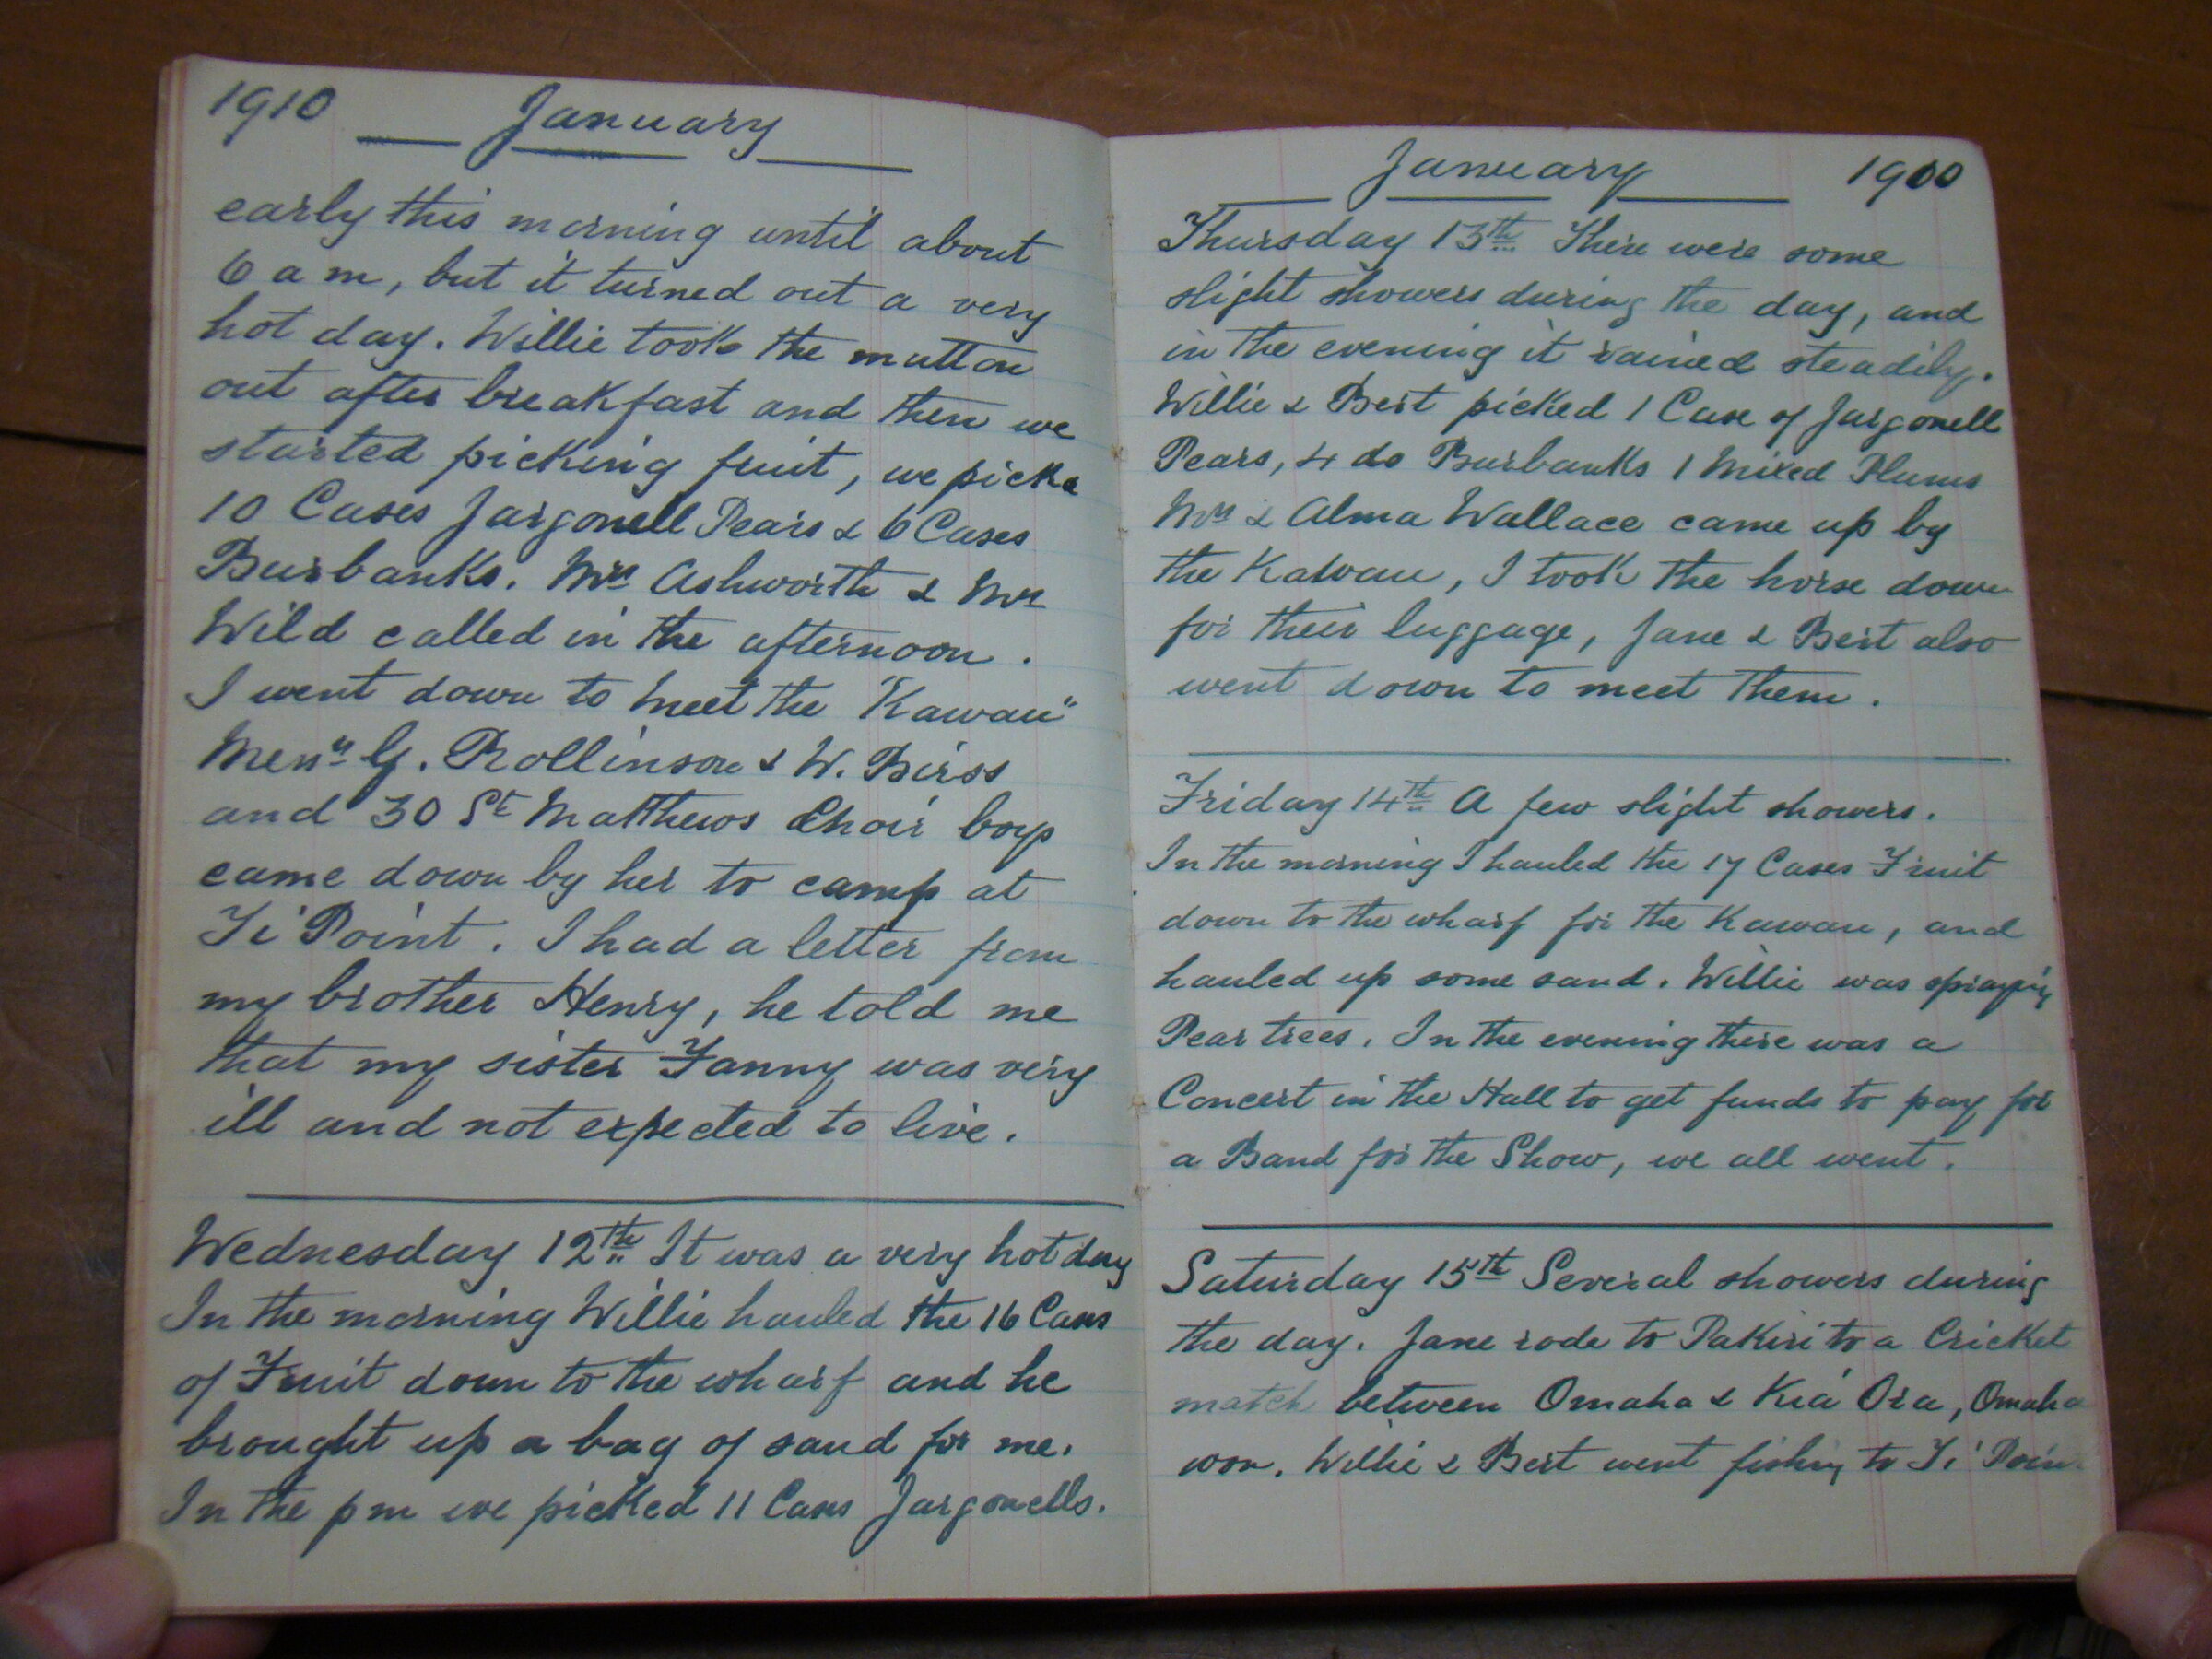 1910 January
early this morning until about
6 a m, but it turned out a very
hot day. Willie took the mutton
out after breakfast and then we
started picking fruit, we picke
10 Cases Jargonell Pears & 6 Cases
Burbanks. Mrs Ashworth & Mrs
Wild called in the afternoon.
I went down to meet the "Kawau"
Messrs G. Rollinson & W. Birss
and 30 St Matthews Choir boys
came down by her to camp at
Ti Point. I had a letter from
my brother Henry, he told me
that my sister Fanny was very
ill and not expected to live.
Wednesday 12th It was a very hot day
In the morning Willie hauled the 16 Cases
of Fruit down to the wharf and he
brought up a bag of sand for me.
In the pm we picked 11 Cases Jargonells.
January 1910
Thursday 13th There were some
slight showers during the day, and
in the evening it rained steadily.
Willie & Bert picked 1 Case of Jargonell
Pears, 4 do Burbanks 1 Mixed Plums
Mrs & Alma Wallace came up by
the Kawau, I took the horse down
for their luggage, Jane & Bert also
went down to meet them.
Friday 14th A few slight showers.
In the morning I hauled the 17 Cases Fruit
down to the wharf for the Kawau, and
hauled up some sand. Willie was spraying
Pear trees. In the evening there was a
Concert in the Hall to get funds to pay for
a Band for the Show, we all went.
Saturday 15th Several showers during
the day. Jane rode to Pakiri to a Cricket
match between Omaha & Kia Ora, Omaha
won. Willie & Bert went fishing to Ti Poin